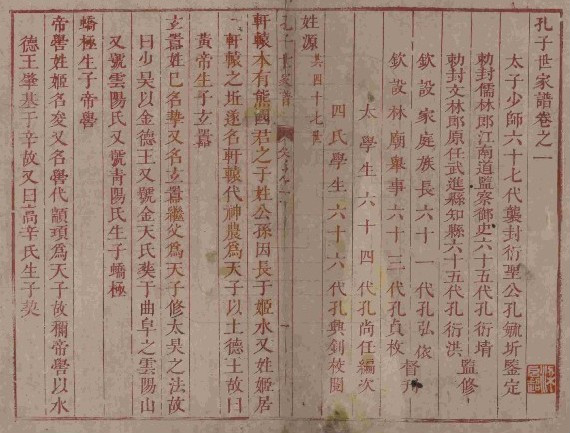 孔子世家譜卷之一
太子少師六十七代襲封衍聖公孔毓圻鑒定
勅封儒林郎江南道監察御史六十五代孔衍
勅封文林郎原任武進縣知縣六十五代孔衍洪
監修
欽設家庭族長六十一代孔弘依
欽設林廟舉事六十三代孔貞枚
督
太學生六十四代孔尚任編次
四氏學生六十六代孔興釗校閱
姓源 共四十七世
孔子世家譜 卷之一
軒轅本有熊國君之子姓公孫因長于姬水又姓姬居
軒轅之丘遂名軒轅代神農為天子以土德王故曰
黃帝生子玄囂
玄囂姓巳名摯又名玄囂繼父為天子修太昊之法故
曰少昊以金德王又號金天氏葬于曲阜之雲陽山
又號雲陽氏又號青陽氏生子蟜極
蟜極生子帝嚳
帝嚳姓姬名夋又名嚳代顓頊為天子故稱帝嚳以水
德王肇基于辛故又曰高辛氏生子契